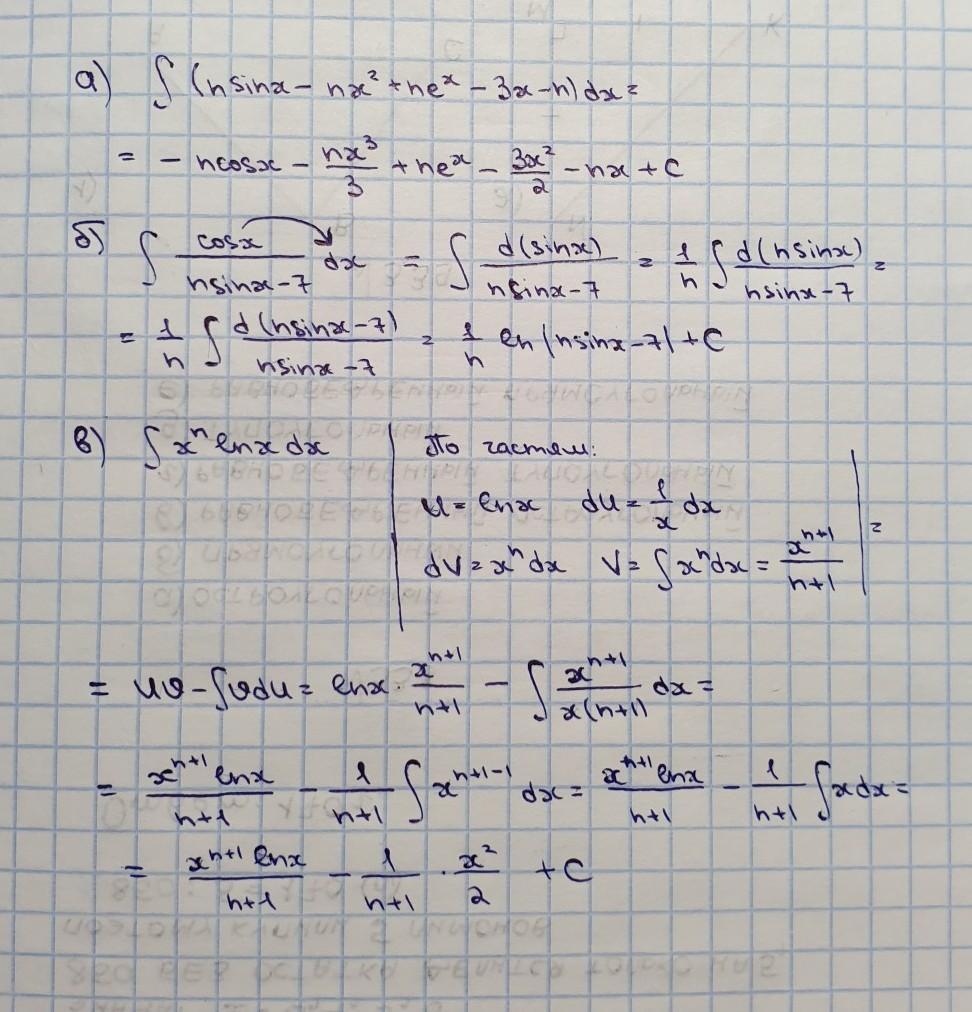 а) ∫ (n sinx − nx² + ne^x − 3x − n) dx =
= − n cosx − nx³/3 + ne^x − 3x²/2 − nx + C
б) ∫ cosx/(n sinx − 7) dx = ∫ d(sinx)/(n sinx − 7) = 1/n ∫ d(n sinx)/(n sinx − 7) =
= 1/n ∫ d(n sinx − 7)/(n sinx − 7) = 1/n ln|n sinx − 7| + C
в) ∫ x^n lnx dx | По частям:
u = lnx du = 1/x dx
dV = x^n dx V = ∫ x^n dx = x^(n+1)/(n+1) | =
= uv − ∫ v du = lnx · x^(n+1)/(n+1) − ∫ x^(n+1)/(x(n+1)) dx =
= x^(n+1) lnx/(n+1) − 1/(n+1) ∫ x^(n+1−1) dx = x^(n+1) lnx/(n+1) − 1/(n+1) ∫ x dx =
= x^(n+1) lnx/(n+1) − 1/(n+1) · x²/2 + C